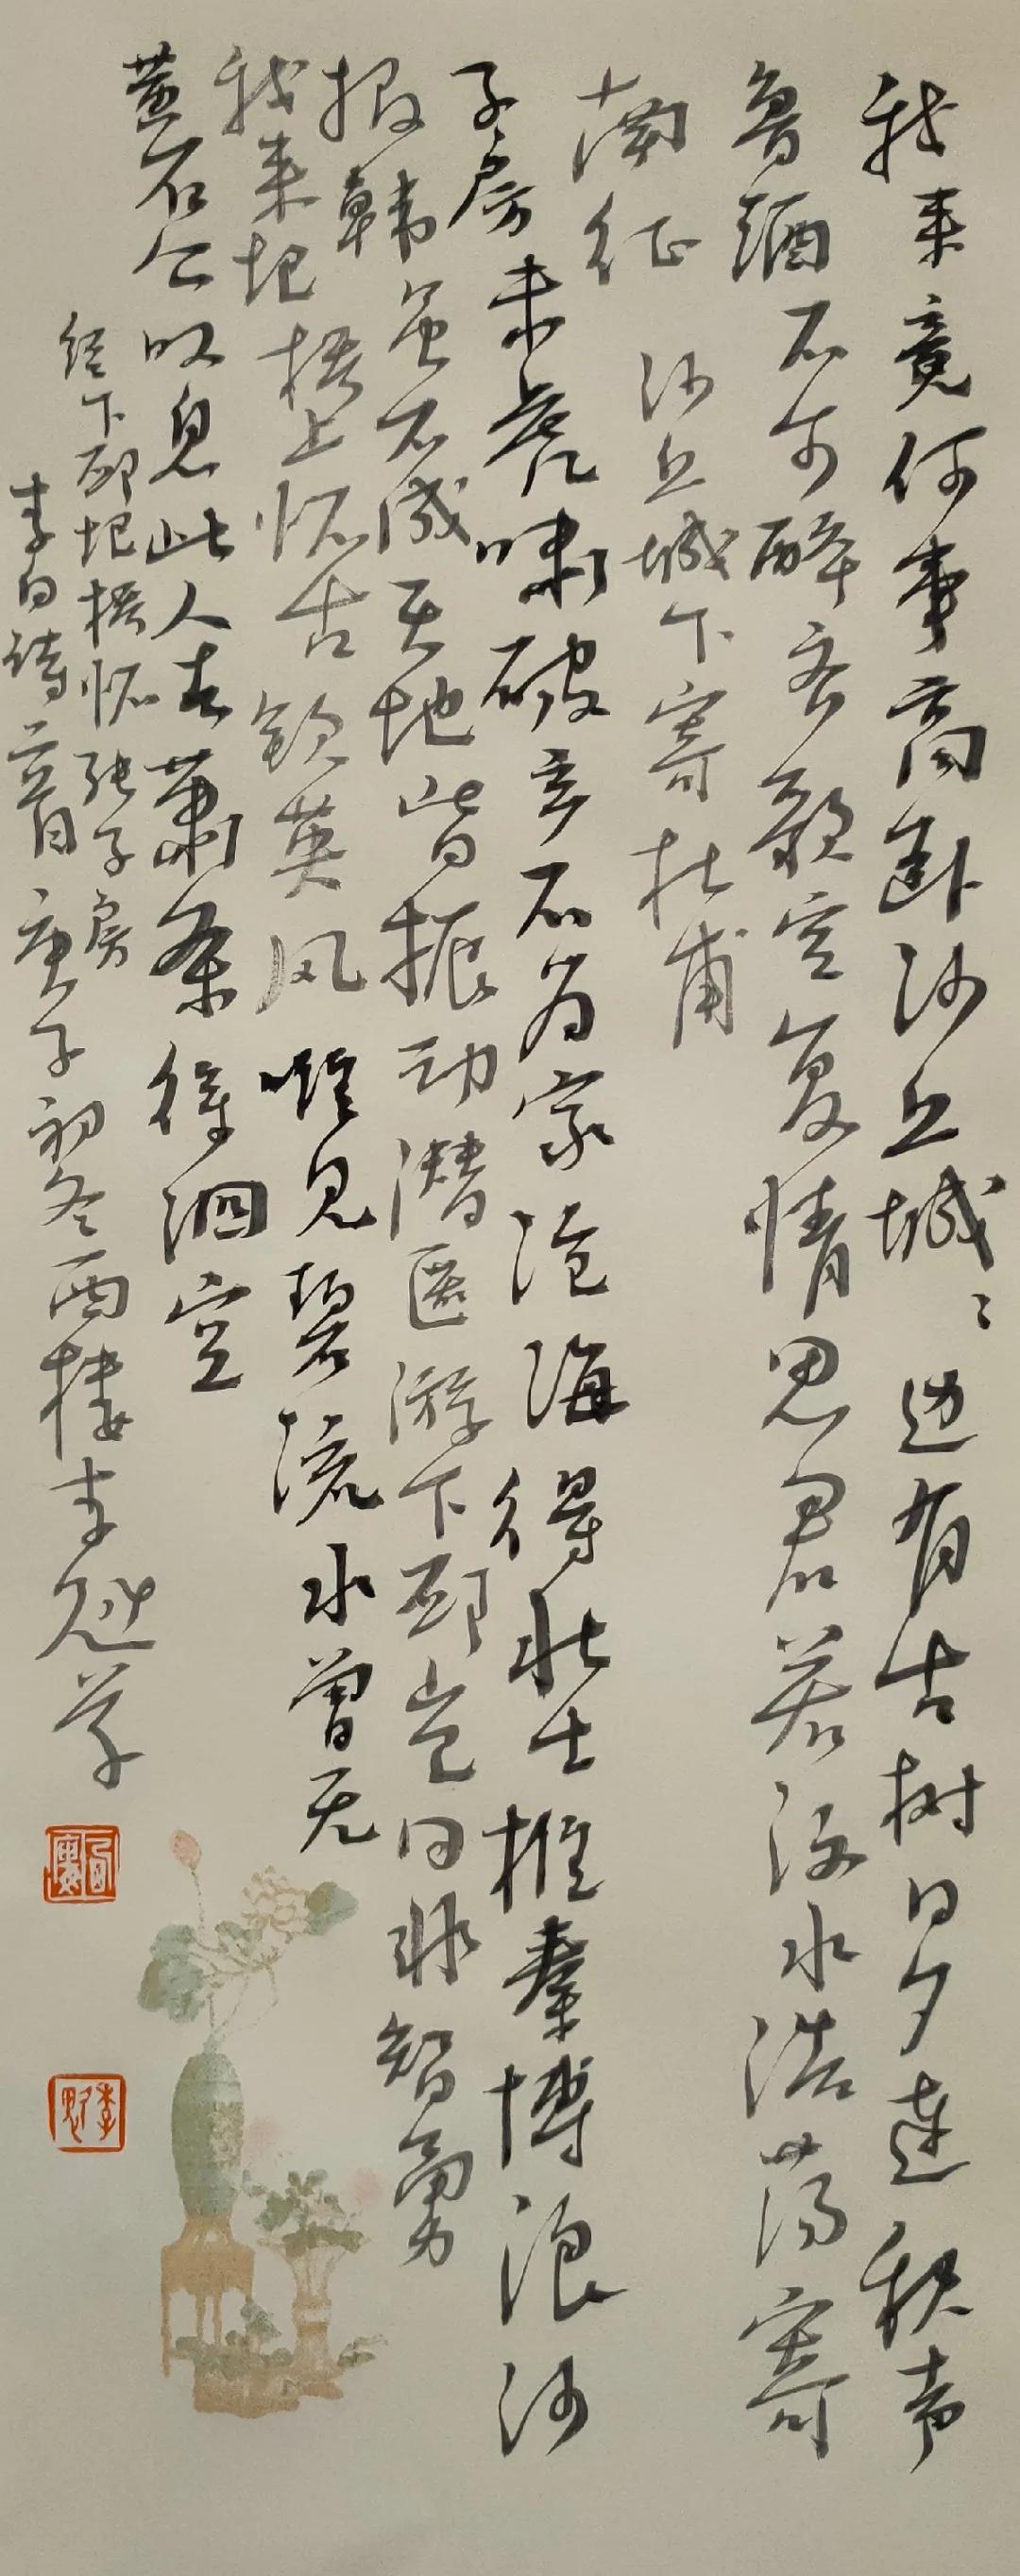 我来竟何事高卧沙丘城〻边有古树日夕连秋声
鲁酒不可醉齐歌空复情思君若汶水浩荡寄
南征 沙丘城下寄杜甫
子房未虎啸破产不为家沧海得壮士推秦博浪沙
报韩虽不成天地皆振动潜匿游下邳岂曰非智勇
我来圯桥上怀古钦英风唯见碧流水曾无
黄石公叹息此人去萧条徐泗空
经下邳圯桥怀张子房
李白诗二首庚子初冬西楼李